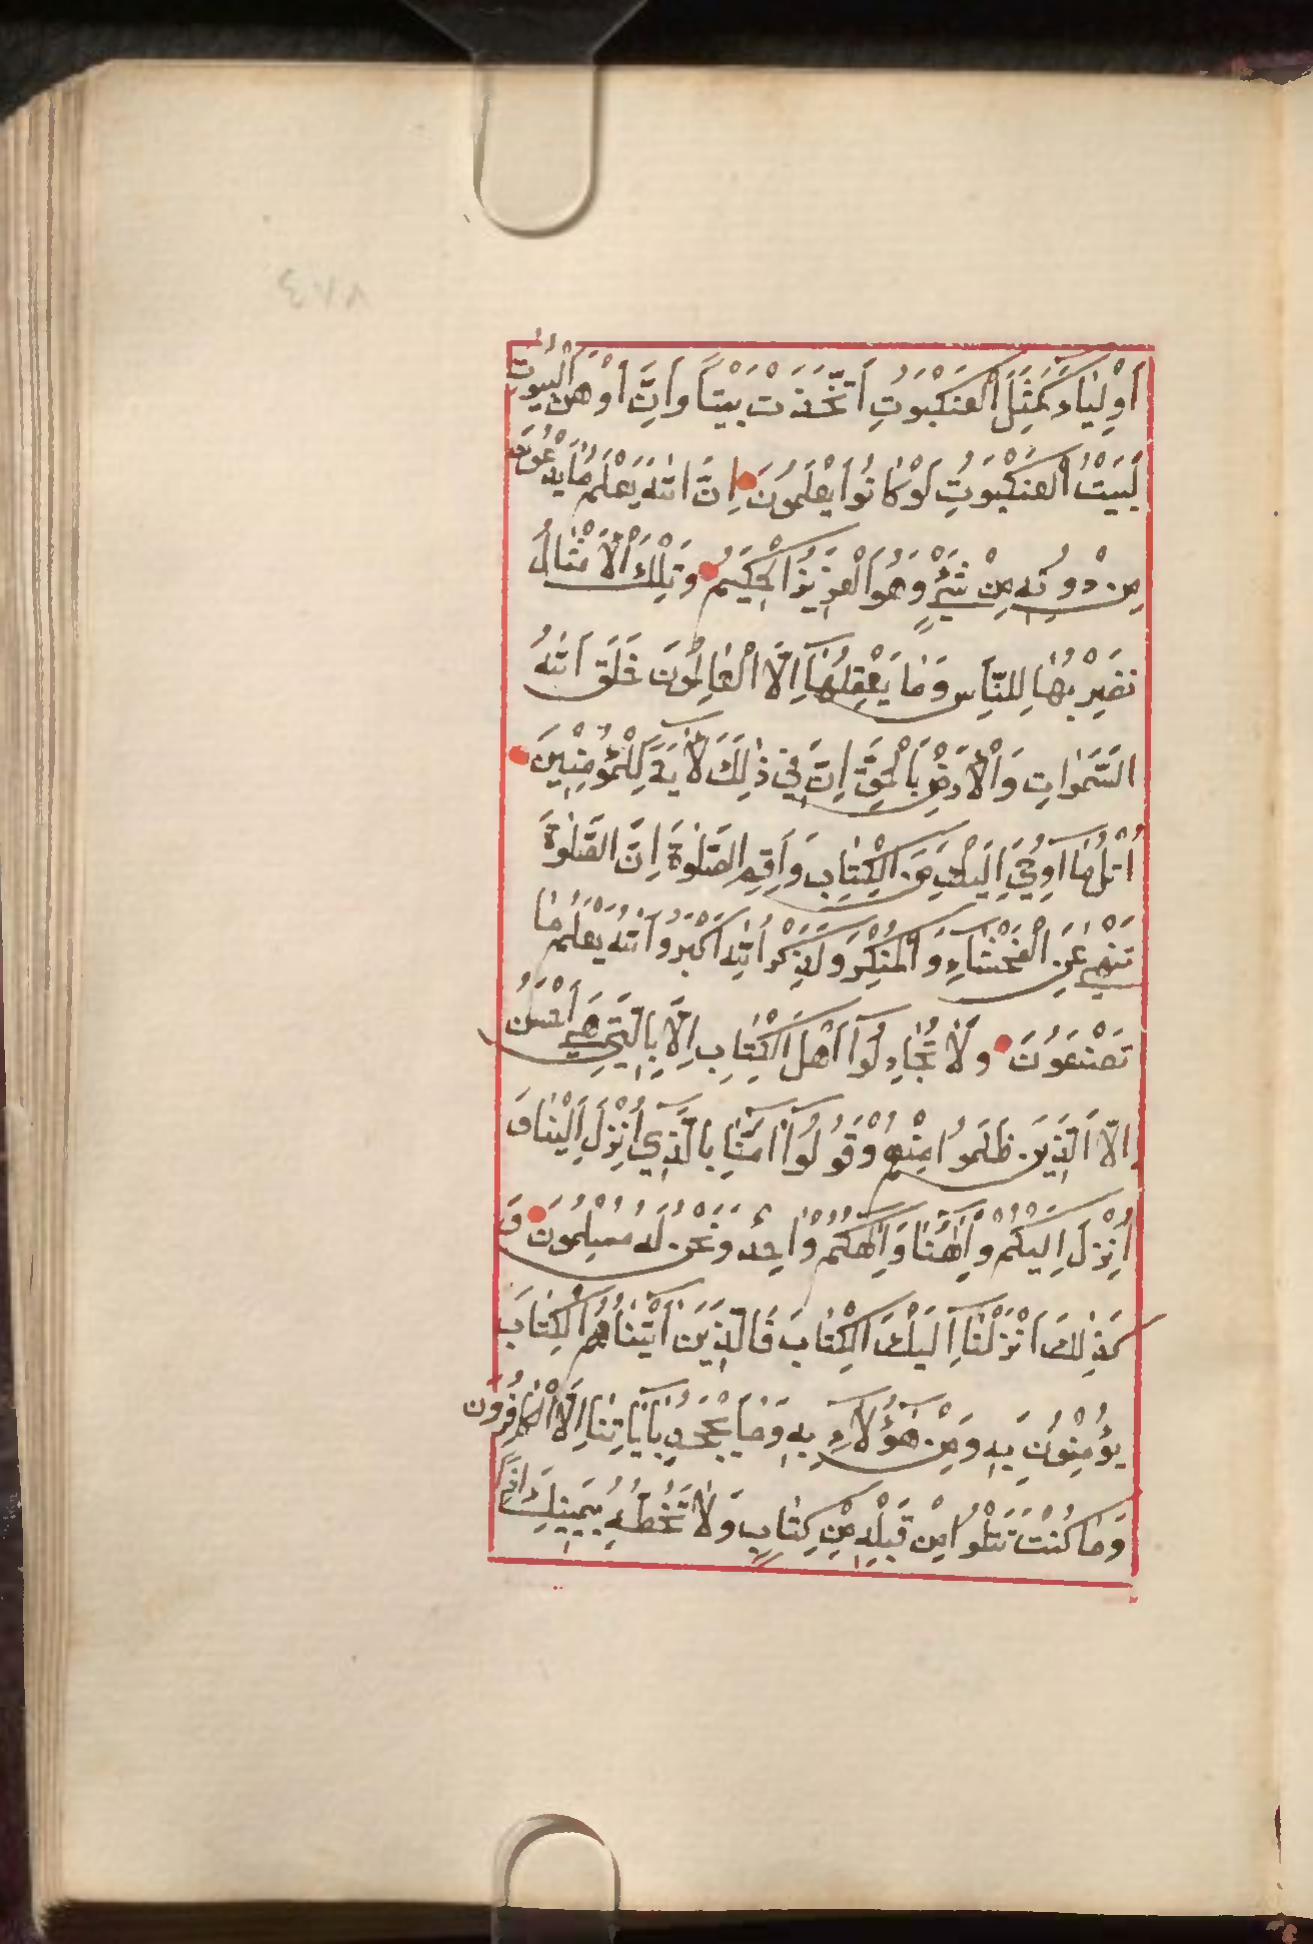 ٧٨٣
أَوْلِيَاءَ كَمَثَلِ الْعَنْكَبُوتِ اَتَّخَذَتْ بَيْتاً وَاِنَّ أَوْهَنَ الْبُيُوتِ
لَبَيْتُ الْعَنْكَبُوتِ لَوْ كَانُوا يَعْلَمُونَ اِنَّ اللهَ يَعْلَمُ مَا يَدْعُونَ
مِنْ دُونِهِ مِنْ شَيْءٍ وَهُوَ الْعَزِيزُ الْحَكِيمُ وَتِلْكَ الْأَمْثَالُ
نَضْرِبُهَا لِلنَّاسِ وَمَا يَعْقِلُهَا اِلَّا الْعَالِمُونَ خَلَقَ اللهُ
السَّمٰوَاتِ وَالْأَرْضَ بِالْحَقِّ اِنَّ فِي ذٰلِكَ لَأٰيَةً لِلْمُؤْمِنِينَ
اُتْلُ مَا اُوحِيَ اِلَيْكَ مِنَ الْكِتَابِ وَاَقِمِ الصَّلٰوةَ اِنَّ الصَّلٰوةَ
تَنْهٰى عَنِ الْفَحْشَاءِ وَالْمُنْكَرِ وَلَذِكْرُ اللهِ اَكْبَرُ وَاللهُ يَعْلَمُ مَا
تَصْنَعُونَ وَلَا تُجَادِلُوا اَهْلَ الْكِتَابِ اِلَّا بِالَّتِي هِيَ اَحْسَنُ
اِلَّا الَّذِينَ ظَلَمُوا مِنْهُمْ وَقُولُوا اٰمَنَّا بِالَّذِي اُنْزِلَ اِلَيْنَا وَ
اُنْزِلَ اِلَيْكُمْ وَاِلٰهُنَا وَاِلٰهُكُمْ وَاحِدٌ وَنَحْنُ لَهُ مُسْلِمُونَ وَ
كَذٰلِكَ اَنْزَلْنَا اِلَيْكَ الْكِتَابَ فَالَّذِينَ اٰتَيْنَاهُمُ الْكِتَابَ
يُؤْمِنُونَ بِهِ وَمِنْ هٰؤُلَاءِ بِهِ وَمَا يَجْحَدُ بِأٰيَاتِنَا اِلَّا الْكَافِرُونَ
وَمَا كُنْتَ تَتْلُوا مِنْ قَبْلِهِ مِنْ كِتَابٍ وَلَا تَخُطُّهُ بِيَمِينِكَ اِذاً